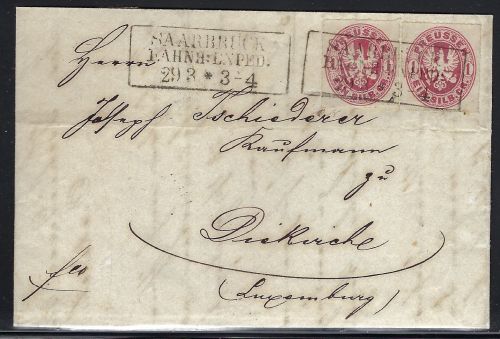 SAARBRÜCK
BAHNH: EXPED.
29 3 * 3-4
PREUSSEN
EIN SILB. GR.
1
PREUSSEN
EIN SILB. GR.
1
Herrn
Joseph Tschiederer
Kaufmann
zu
Diekirche
(Luxemburg)